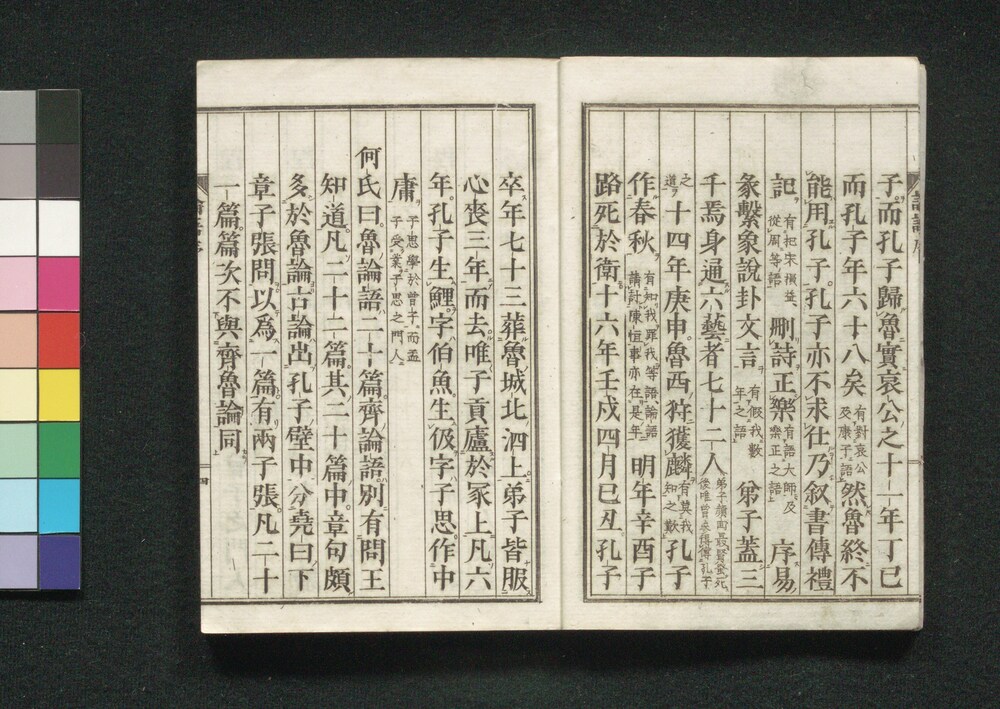 子而孔子歸魯實哀公之十一年丁巳
而孔子年六十八矣有對哀公及康子語然魯終不
能用孔子孔子亦不求仕乃叙書傳禮
記有杞宋損益從周等語刪詩正樂有語大師及樂正之語序易
彖繫象說卦文言有假我數年之語弟子蓋三
千焉身通六藝者七十二人弟子顏回最賢蚤死後唯曾參得傳孔子之道
十四年庚申魯西狩獲麟有莫我知之歎孔子
作春秋有知我罪我等語論語請討陳恒事亦在是年明年辛酉子
路死於衛十六年壬戌四月己丑孔子
卒年七十三葬魯城北泗上弟子皆服
心喪三年而去唯子貢廬於冢上凡六
年孔子生鯉字伯魚生伋字子思作中
庸子思學於曾子而孟子受業子思之門人
何氏曰魯論語二十篇齊論語別有問王
知道凡二十二篇其二十篇中章句頗
多於魯論古論出孔子壁中分堯曰下
章子張問以爲一篇有兩子張凡二十
一篇篇次不與齊魯論同
四